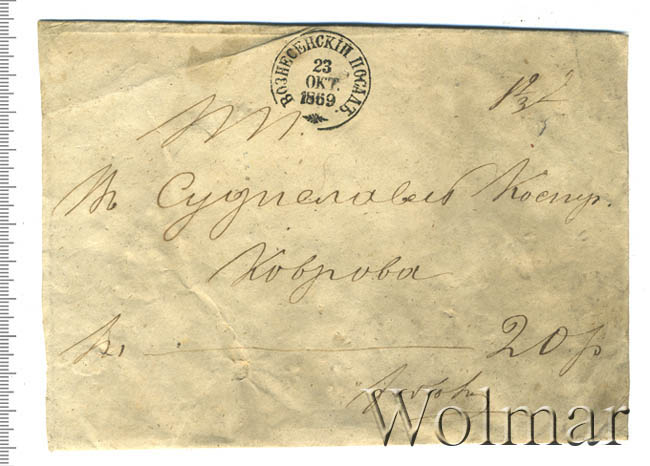 ВОЗНЕСЕНСКІЙ ПОСАДЪ.
23
ОКТ.
1869
Въ Судиславль Костр.
Коврова
20 р
Wolmar